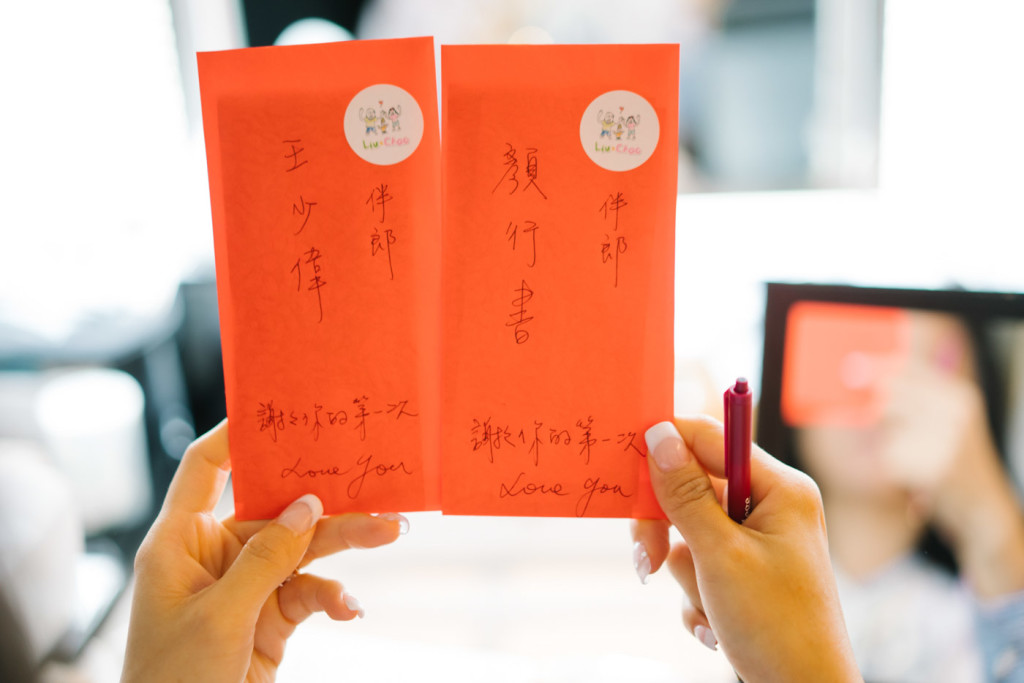 Liu♥Chao
伴郎
王少偉
謝於你的第一次
Love you
Liu♥Chao
伴郎
顏行書
謝於你的第一次
Love you